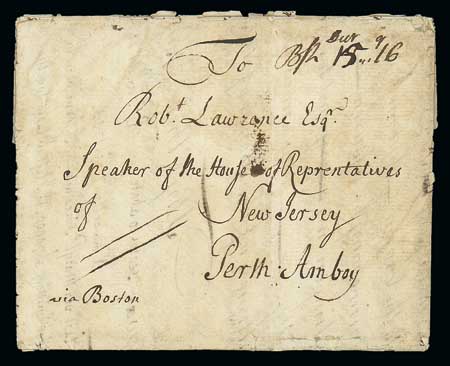 To Bsh Dwt 15..9 16
Robt. Lawrance Esqr.
Speaker of the House of Reprentatives
of New Jersey
Perth Amboy
via Boston